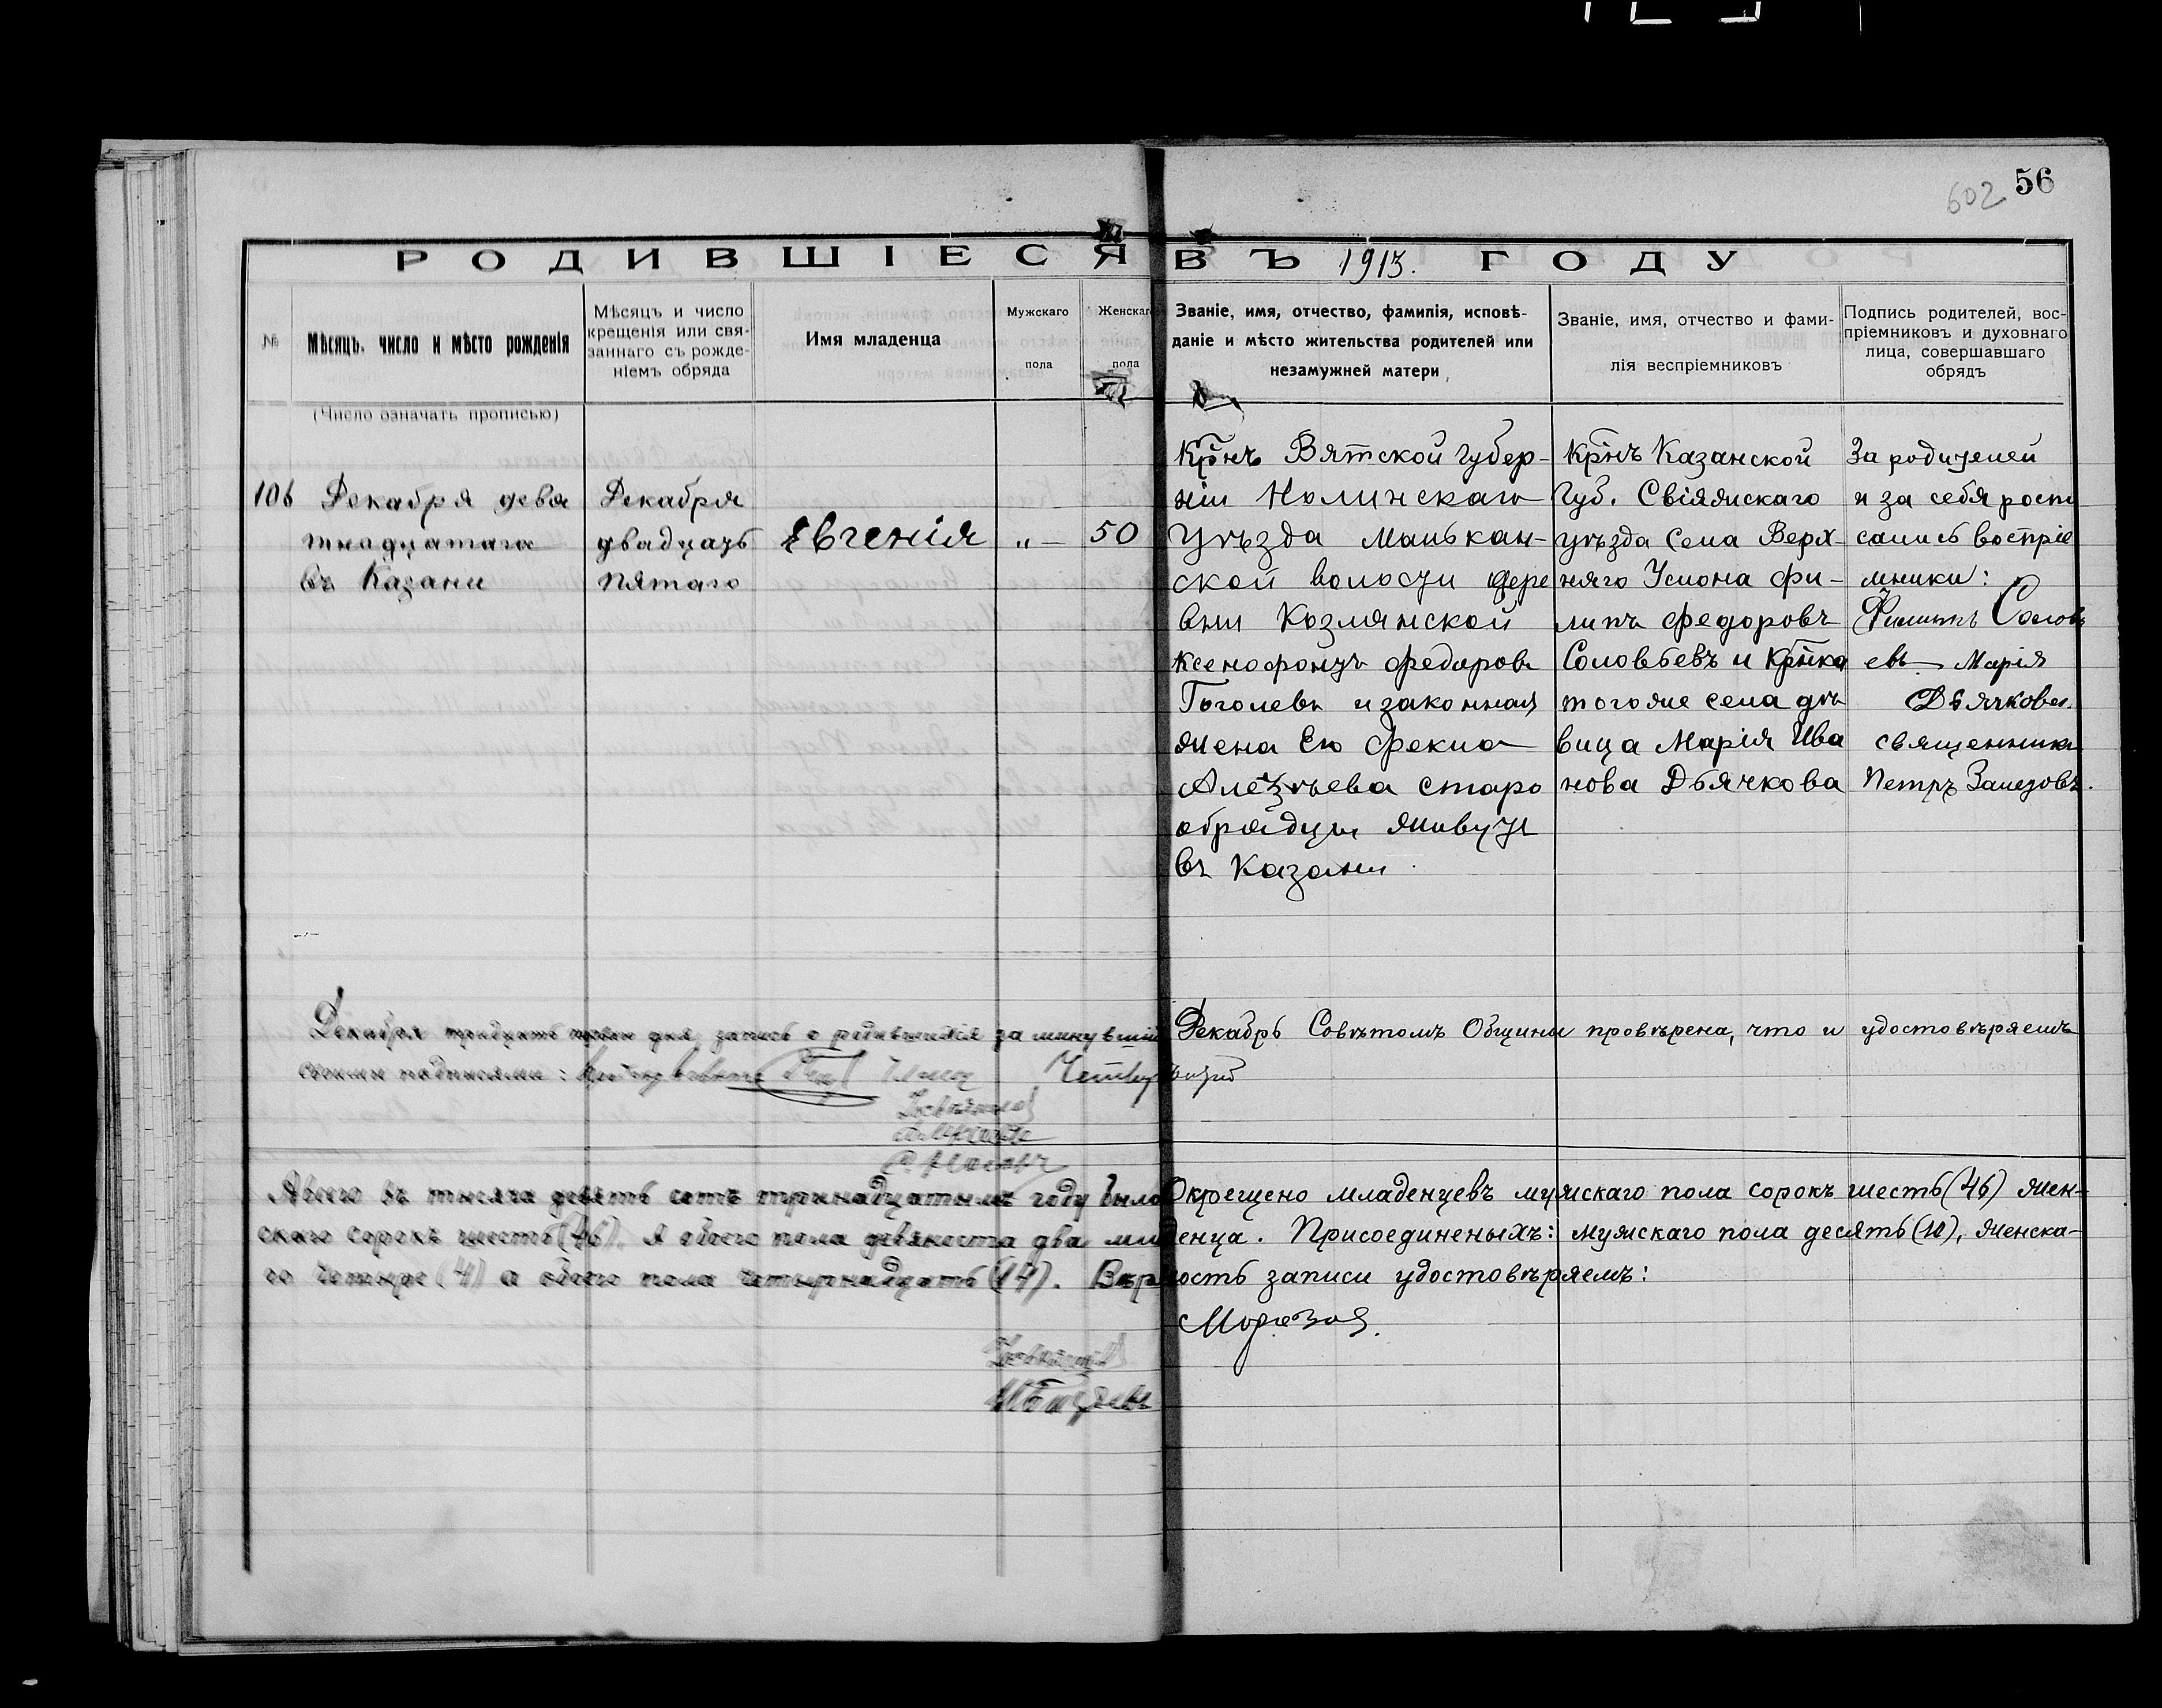 602 56
РОДИВШІЕСЯ ВЪ 1913. ГОДУ
№
Мѣсяцъ, число и мѣсто рожденія
Мѣсяцъ и число
крещенія или свя-
заннаго съ рожде-
ніемъ обряда
Имя младенца
Мужскаго
пола
Женскаго
пола
Званіе, имя, отчество, фамилія, исповѣ-
даніе и мѣсто жительства родителей или
незамужней матери
Званіе, имя, отчество и фами-
лія веспріемниковъ
Подпись родителей, вос-
пріемниковъ и духовнаго
лица, совершавшаго
обрядъ
(Число означать прописью)
106
Декабря девя
тнадцатаго
въ Казани
Декабря
двадцать
пятаго
Евгенія
„ —
50
Крнъ Вятской Губер-
ніи Нолинскаго
Уѣзда Малькан-
ской волости дере
вни Козмянской
Ксенофонтъ Федоровъ
Гоголевъ и законная
жена Его Фекла
Алеѯѣева старо
обрядцы живут
въ Казани
Крнъ Казанской
Губ. Свіяжскаго
уѣзда Села Верх-
няго Услона Фи-
липъ Федоровъ
Соловьевъ и Крнка
тогоже села дѣ
вица Марія Ива
нова Дьячкова
За родителей
и за себя роспи
сались воспріе
мники:
Филиппъ Соловь
евъ Марія
Дьячкова
священникъ
Петръ Залетовъ.
Декабря тридцать перваго дня запись о родившихся за минувшій Декабрь Совѣтомъ Общины провѣрена, что и удостовѣряемъ
своими подписями:
Авсего въ тысяча девять сотъ тринадцатомъ году было Окрещено младенцевъ мужскаго пола сорокъ шесть (46) жен-
скаго сорокъ шесть (46). А обоего пола девяноста два младенца. Присоединеныхъ: мужскаго пола десять (10), женска-
го четыре (4) а обоего пола четырнадцать (14). Вѣрность записи удостовѣряемъ:
Морозов